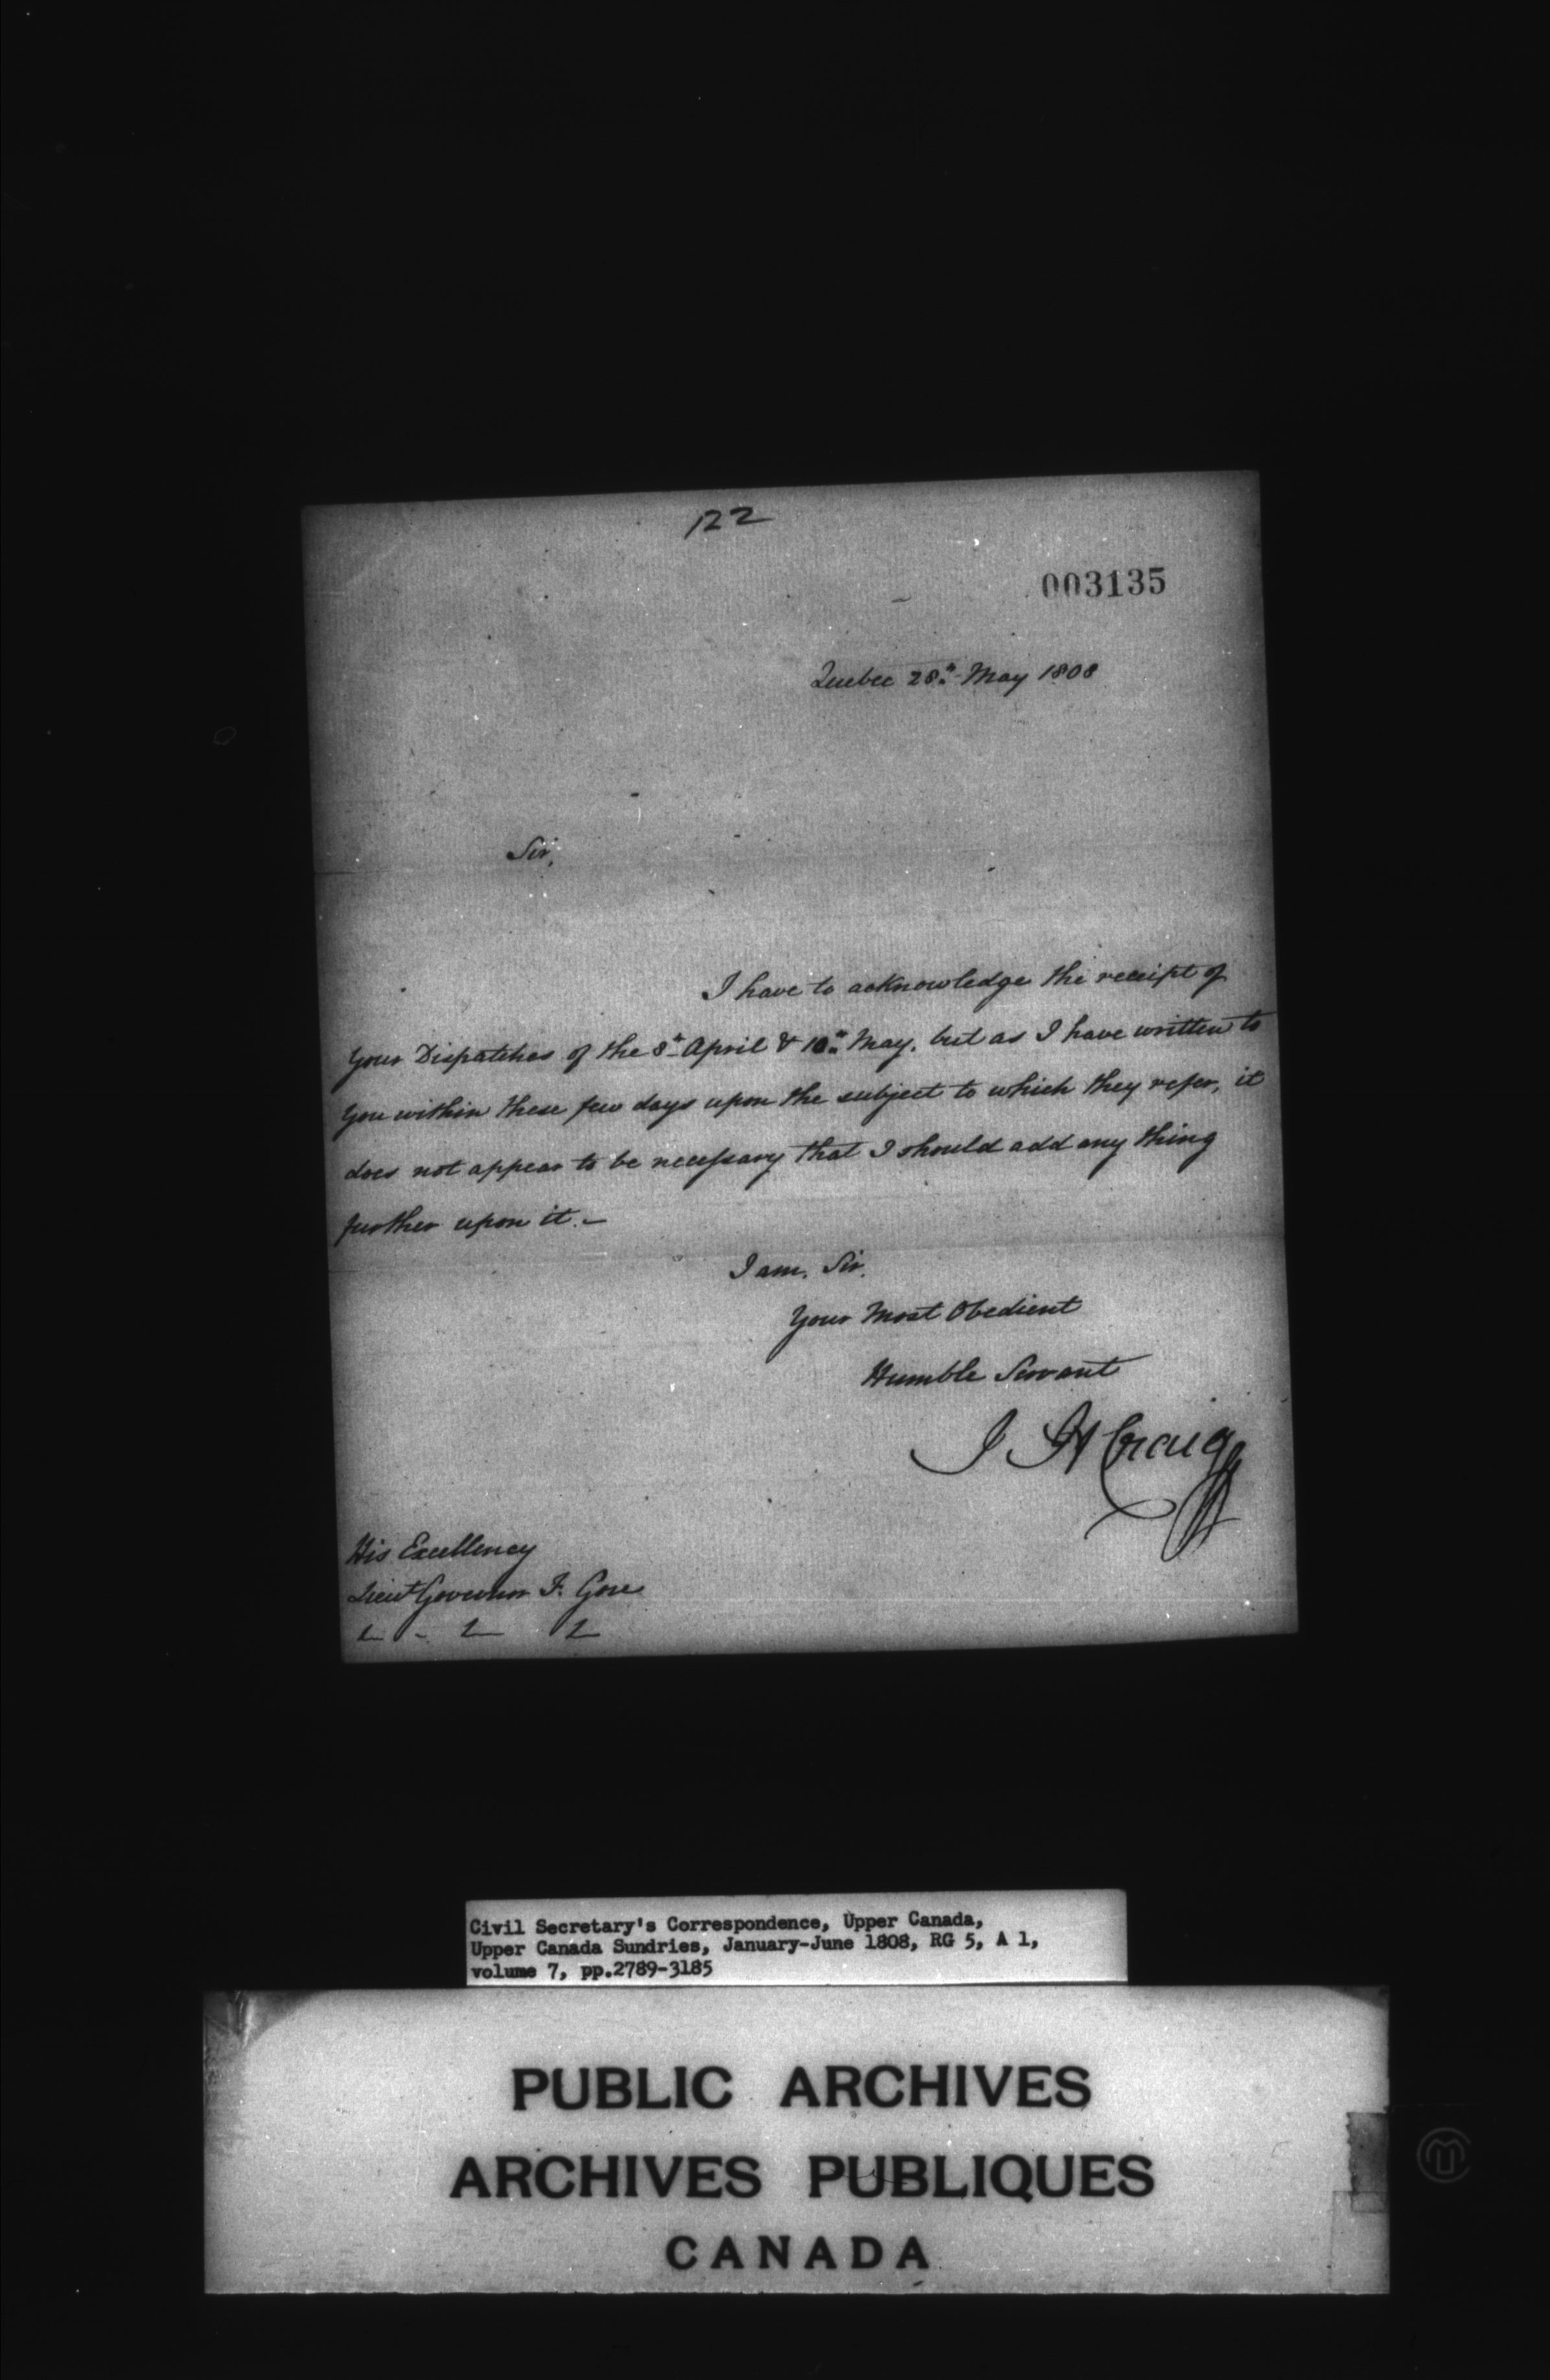 122
003135
Quebec 28th May 1808
Sir,
I have to acknowledge the receipt of
Your Dispatches of the 8th April & 10th May, but as I have written to
You within these few days upon the subject to which they refer, it
does not appear to be necessary that I should add any thing
further upon it.-
I am, Sir,
Your Most Obedient
Humble Servant
J H Craig
His Excellency
Lieut Governor F. Gore
Civil Secretary's Correspondence, Upper Canada,
Upper Canada Sundries, January-June 1808, RG 5, A 1,
volume 7, pp.2789-3185
PUBLIC ARCHIVES
ARCHIVES PUBLIQUES
CANADA